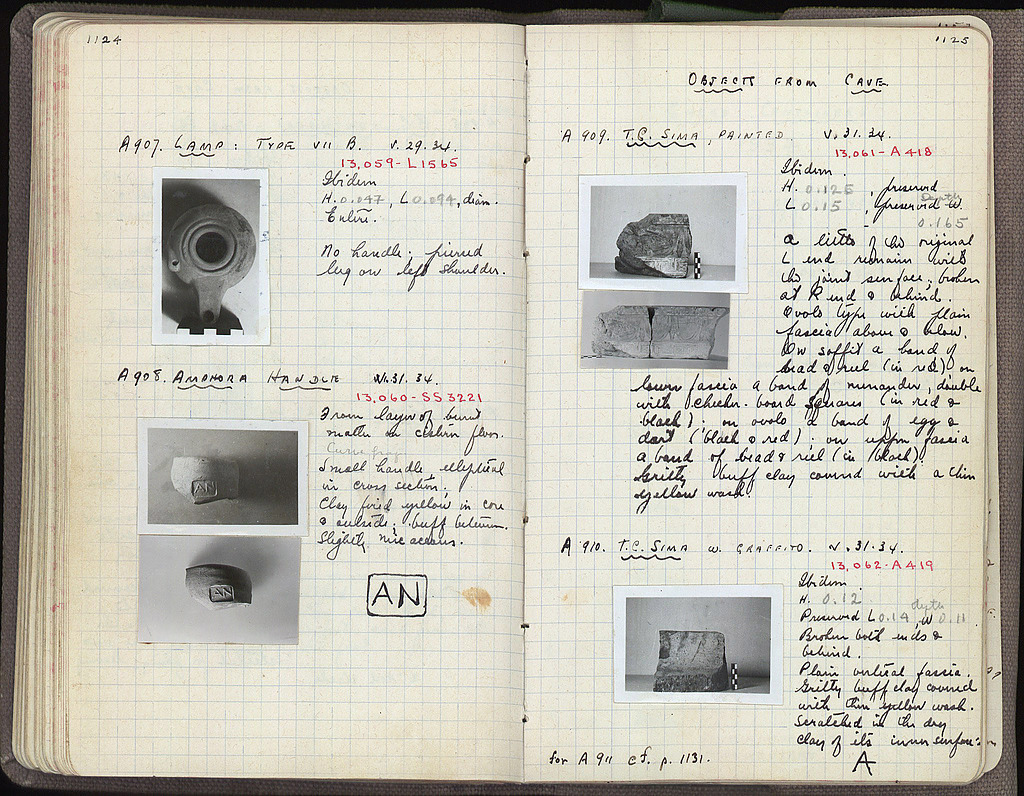 1124
A 907. LAMP: TYPE VII B. V. 29. 34.
13,059 - L 1565
Ibidem
H. 0.047, L 0.094, diam.
Entire.
No handle; pierced
lug on left shoulder.
A 908. AMPHORA HANDLE VI. 31. 34.
13,060 - SS 3221
From layer of burnt
matter on cistern floor.
Curve frag
Small handle elliptical
in cross section;
Clay fired yellow in core
& outside; buff between.
Slightly micaceous.
AN
AN
AN
1125
OBJECTS FROM CAVE
A 909. T.C. SIMA, PAINTED. V. 31. 34.
13,061 - A 418
Ibidem.
H. 0.125, preserved
L 0.15, preserved W.
0.165
A little of the original
L end remains with
the joint surface; broken
at R end & behind.
Ovolo type with plain
fascia above & below.
On soffit a band of
bead & reel (in red), on
lower fascia a band of meander, double
with checker-board squares (in red &
black); on ovolo a band of egg &
dart (black & red); on upper fascia
a band of bead & reel (in black).
Gritty buff clay covered with a thin
yellow wash.
A 910. T.C. SIMA W. GRAFFITO. V. 31. 34.
13,062 - A 419
Ibidem
H. 0.12
depth
Preserved L 0.14, W 0.11
Broken both ends &
behind.
Plain vertical fascia.
Gritty buff clay covered
with thin yellow wash.
Scratched in the dry
clay of its inner surface:
A
for A 911 cf. p. 1131.